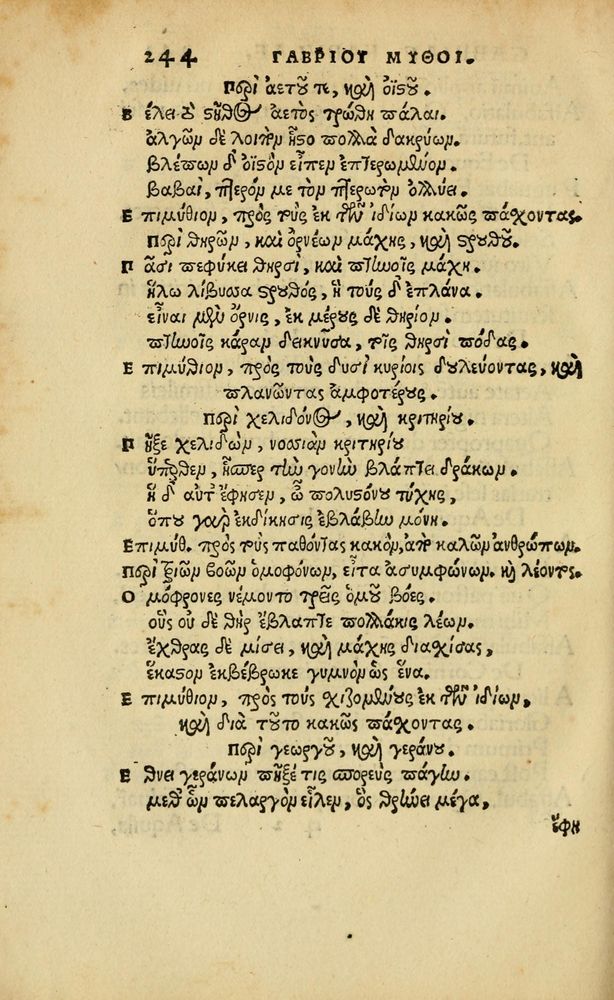 244 ΓΑΒΡΙΟΥ ΜΥΘΟΙ.
Περὶ ἀετοῦ τε, καὶ ὀϊστοῦ.
Βέλει δὲ στῆθος ἀετὸς τρώθη πάλαι.
ἀλγῶν δὲ λοιπὸν ἧστο πολλὰ δακρύων.
βλέπων δ' ὀϊστὸν εἶπεν ἐπτερωμένον.
βαβαὶ, πτερόν με τὸν πτερωτὸν ὀλλύει.
Ἐπιμύθιον, πρὸς τοὺς ἐκ τῶν ἰδίων κακῶς πάχοντας.
Περὶ θηρῶν, καὶ ὀρνέων μάχης, καὶ στρουθοῦ.
Πᾶσι πεφύκει θηρσὶ, καὶ πτηνοῖς μάχη.
ἥλω λίβυσσα στρουθός, ἣ τοὺς δ' ἐπλάνα.
εἶναι μὲν ὄρνις, ἐκ μέρους δὲ θηρίον.
πτηνοῖς κάραν δεικνῦσα, τοῖς θηρσὶ πόδας.
Ἐπιμύθιον, πρὸς τοὺς δυσὶ κυρίοις δουλεύοντας, καὶ
πλανῶντας ἀμφοτέρους.
Περὶ χελιδόνος, καὶ κριτηρίου.
Πῆξε χελιδὼν, νοσσιὰν κριτηρίου
ὕπερθεν, ἧσπερ τὴν γονὴν βλάπτει δράκων.
ἣ δ' αὖτ' ἔφησεν, ὦ πολυστόνου τύχης,
ὅπου γὰρ ἐκδίκησις ἐβλάβην μόνη.
Ἐπιμύθ. πρὸς τοὺς παθόντας κακὸν, ἀπὸ καλῶν ἀνθρώπων.
Περὶ τριῶν βοῶν ὁμοφόνων, εἶτα ἀσυμφώνων. καὶ λέοντος.
Ὁμόφρονες νέμοντο τρεῖς ὁμοῦ βόες.
οὓς οὐ δὲ θὴρ ἔβλαπτε πολλάκις λέων.
ἔχθρας δὲ μίσει, καὶ μάχης διαχίσας,
ἕκαστον ἐκβέβρωκε γυμνὸν ὡς ἕνα.
Ἐπιμύθιον, πρὸς τοὺς χιζομένους ἐκ τῶν ἰδίων,
καὶ διὰ τοῦτο κακῶς πάχοντας.
Περὶ γεωργοῦ, καὶ γεράνου.
Ἔθνει γεράνων πῆξέ τις σπορεὺς πάγην.
μεθ' ὧν πελαργὸν εἷλεν, ὃς θρηνεῖ μέγα,
ἔφη